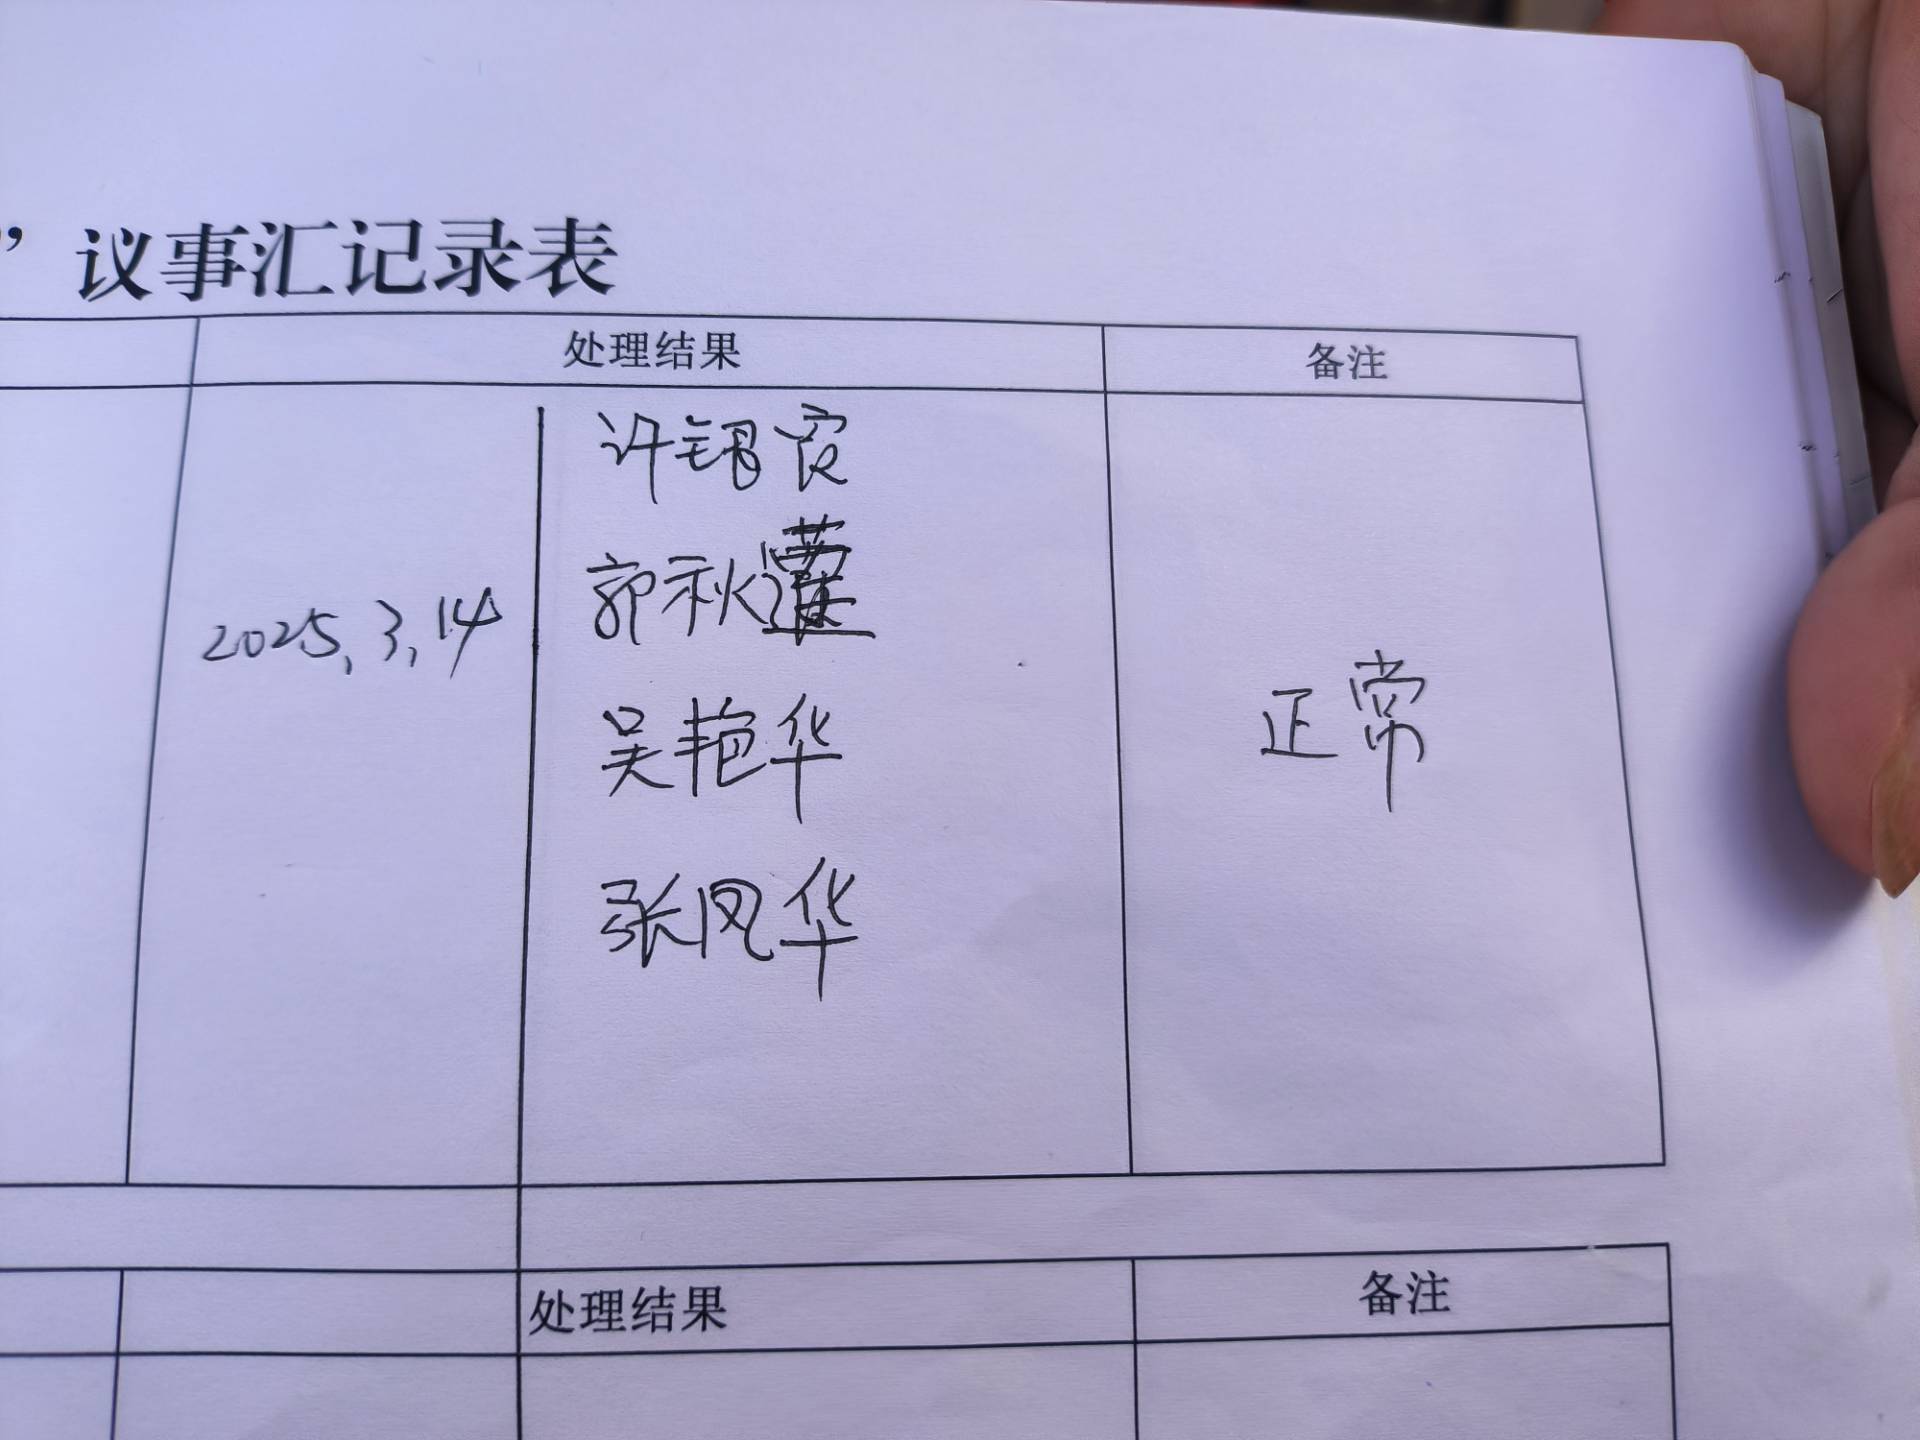 ”议事汇记录表
处理结果 备注
许 良
郭秋莲
2025.3.14
吴艳华
正常
张凤华
处理结果 备注